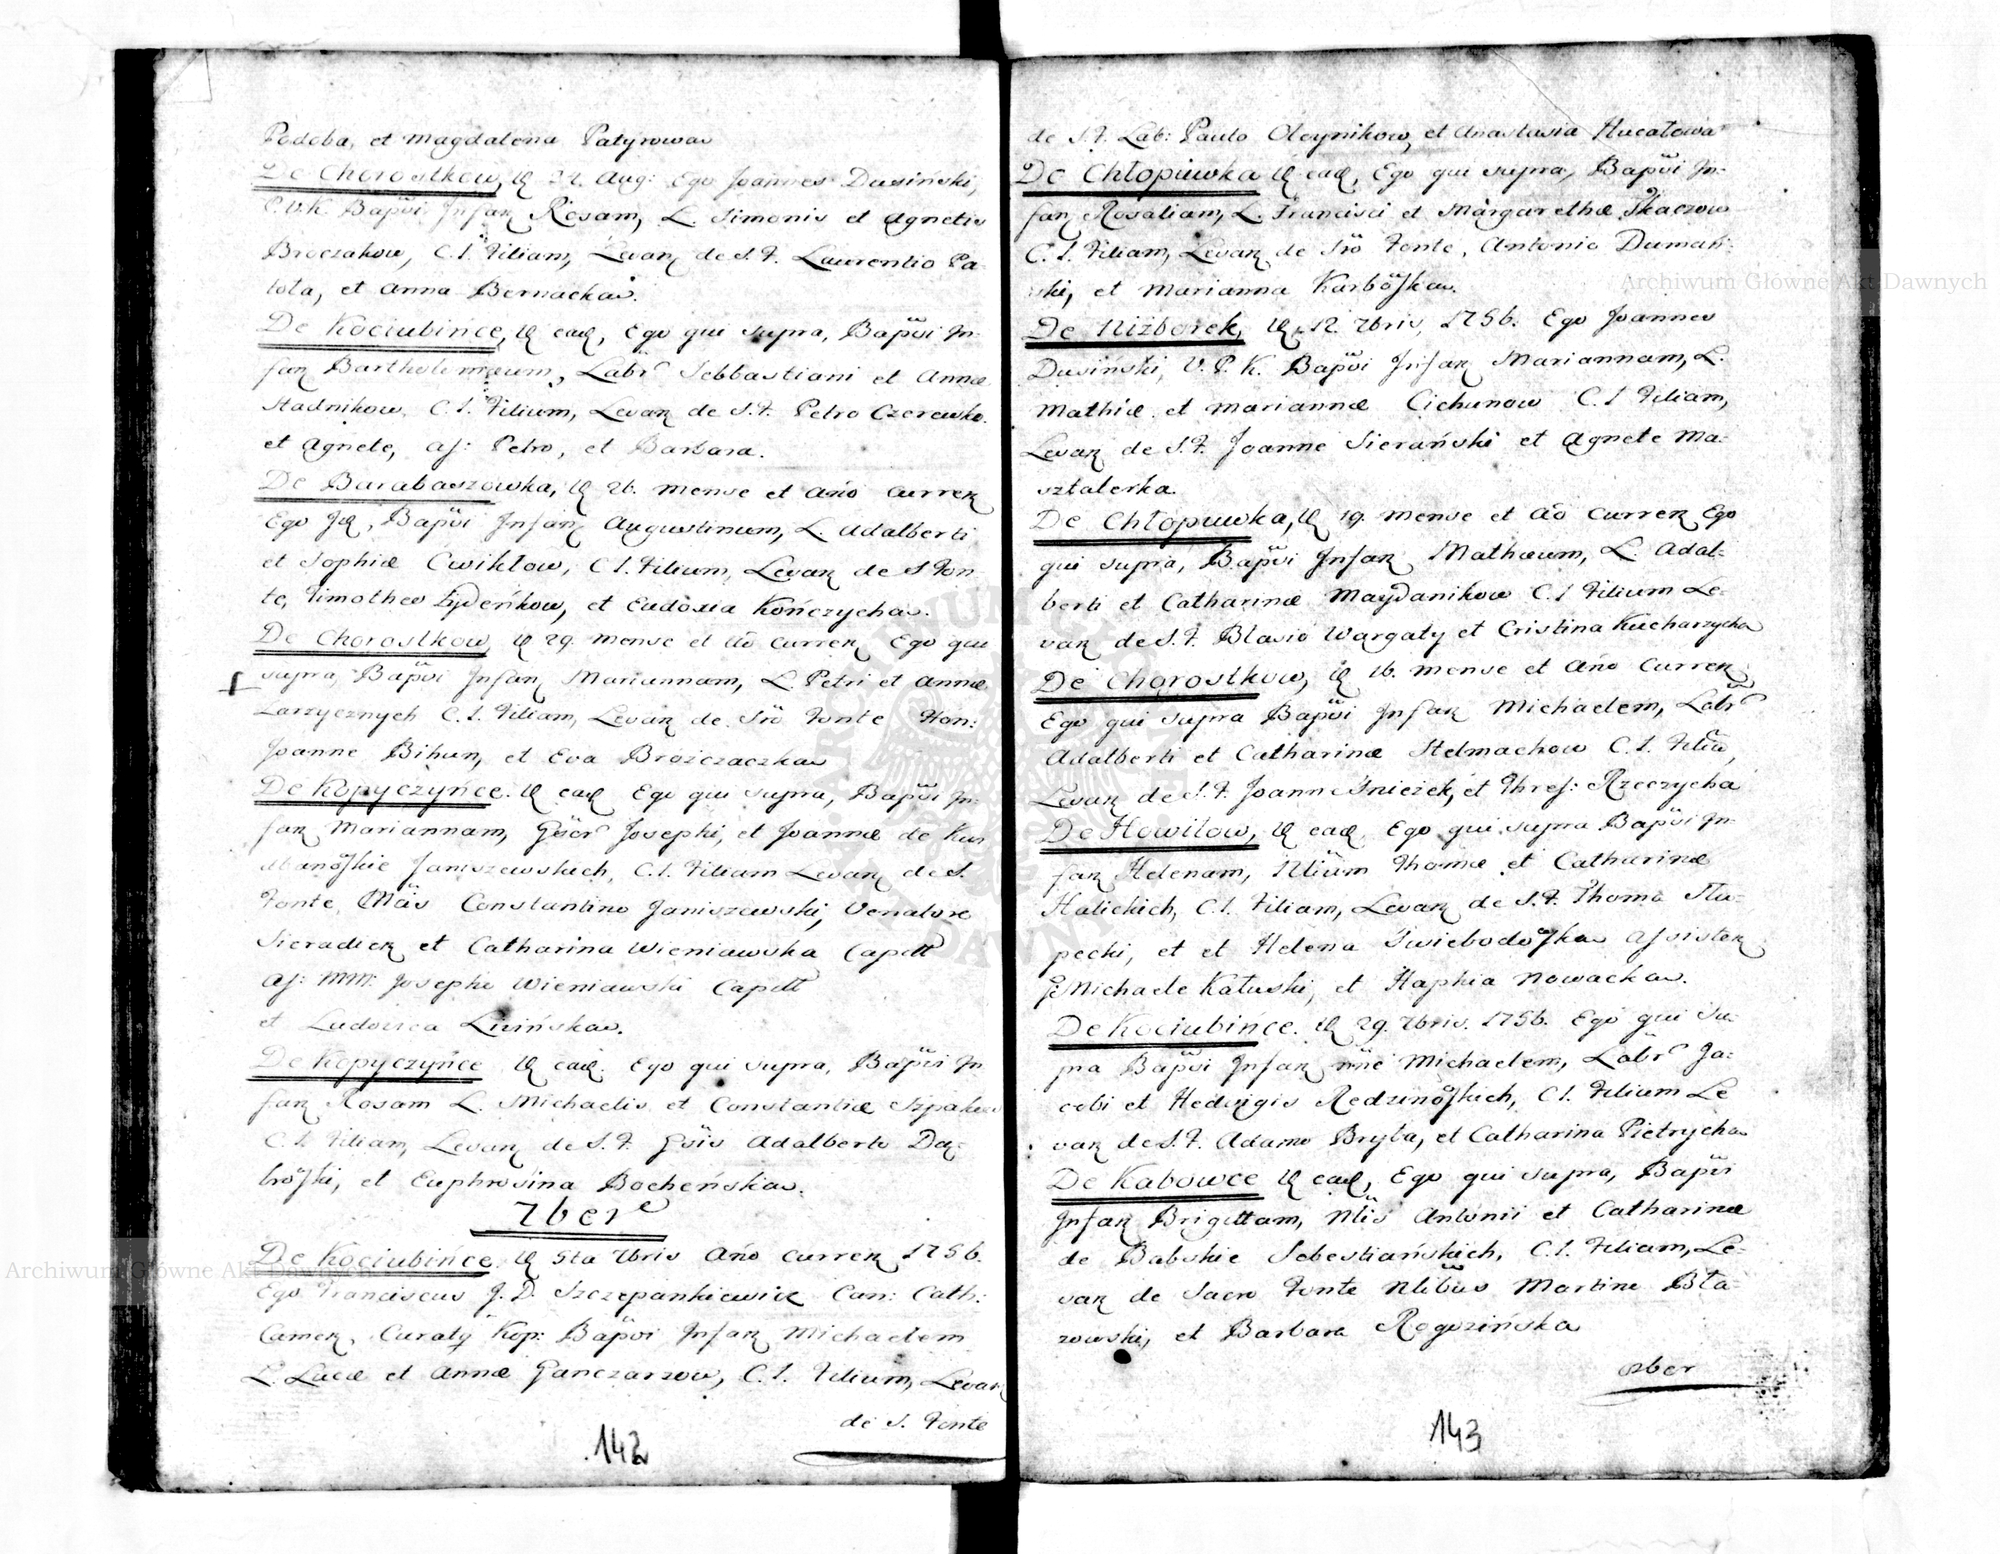 Podoba, et Magdalena Patyrowa
De Chorostkow, 22. Aug: Ego Joannes Dusiński,
Infan Rosam, L. Simonis et Agnetis
Broczakow, C. l. Filiam, Levan de S. F. Laurentio Pa-
tola, et Anna Bernacka.
De Kociubińce, ead, Ego qui supra, Bapvi In-
fan Bartholomæum, Labr Sebbastiani et Annæ
Stadnikow, C. l. Filium, Levan de S. F. Petro Czerewko
et Agnete, as: Petro, et Barbara.
De Barabaszowka, 26. Mense et Año curren
Ego Id, Bapvi Infan Augustinum, L. Adalberti
et Sophiæ Cwikłow, C. l. Filium, Levan de S Fon-
te, Timotheo, et Eudoxia Kończycha.
De Chorostkow, 29. mense et Aõ curren Ego qui
supra, Bapvi Infan Mariannam, L. Petri et Annæ
Zarzycznych C. l. Filiam, Levan de Sro Fonte Hon:
Joanne Bihun, et Eva Brozczaczka
De Kopyczyńce. ead Ego qui supra, Bapvi In-
fan Mariannam, Josephi, et Joannæ de
Janiszewskich, C. l. Filiam Levan de S.
Fonte, Constantino Janiszewski, Venatore
Sieradien et Catharina Wieniawska Capitt
As: MM: Josepho Wieniawski Capitt
et Ludovica Liwińska.
De Kopyczyńce ead. Ego qui supra, Bapvi In
fan Rosam L. Michaelis et Constantiæ Szpaków
C. l. Filiam, Levan de S. F. Adalberto Dą-
broski, et Euphrosina Bocheńska.
7ber
De Kociubińce, 5ta 7bris Año curren 1756.
Ego Franciscus J. D. Szczepankiewicz Can: Cath:
Camen, Curatq Kop: Bapvi Infan Michaelem
L. Lucæ et Annæ Ganczarzow, C. l. Filium, Levan
de S. Fonte
142
de S. F. Lab: Paulo Oleynikow, et Anastasia Hucałowa
De Chłopiwka ead, Ego qui supra, Bapvi In-
fan Rosaliam, L. Francisci et Margarethæ Tkaczow
C. l. Filiam, Levan de Sro Fonte, Antonio Dumań-
ski, et Marianna Karboska.
De Niżborek, 12. 7bris, 1756. Ego Joannes
Dusiński, V. P. K. Bapvi Infan Mariannam, L.
Mathiæ et Mariannæ Cichunow C. l Filiam,
Levan de S. F. Joanne Sierański et Agnete Ma-
sztalerka.
De Chłopiwka, 19. Mense et Aõ curren Ego
qui supra, Bapvi Infan Mathæum, L. Adal-
berti et Catharinæ Maydanikow C. l Filium Le-
van de S. F. Blasio Wargaty et Cristina Kucharzycha
De Chorostkow, 16. mense et Año curren
Ego qui supra Bapvi Infan Michaelem, Labr
Adalberti et Catharinæ Stelmachow C. l. Filiũ,
Levan de S. F. Joanne Snieżek, et Thres: Rzeczycha
De Howilow, ead, Ego qui supra Bapvi In-
fan Helenam, Nlium Thomæ et Catharinæ
Halickich, C. l. Filiam, Levan de S. F. Thoma Słu-
pecki, et et Helena Swiebodoska Assisten
G Michaele Kałuski, et Haphia Nowacka.
De Kociubińce. 29. 7bris. 1756. Ego qui su-
pra Bapvi Infan nne Michaelem, Labr Ja-
cobi et Hedvigis Redzinoskich, C. l. Filium Le
van de S. F. Adamo Bryła, et Catharina Pietrycha
De Kabowce ead, Ego qui supra, Bapvi
Infan Brigittam, Nlis Antonii et Catharinæ
de Babskie Sebestiańskich, C. l. Filiam, Le-
van de Sacro Fonte Nlibus Martino Bła-
zowski, et Barbara Rogozińska
8ber
143
Archiwum Główne Akt Dawnych
Archiwum Główne Akt Dawnych